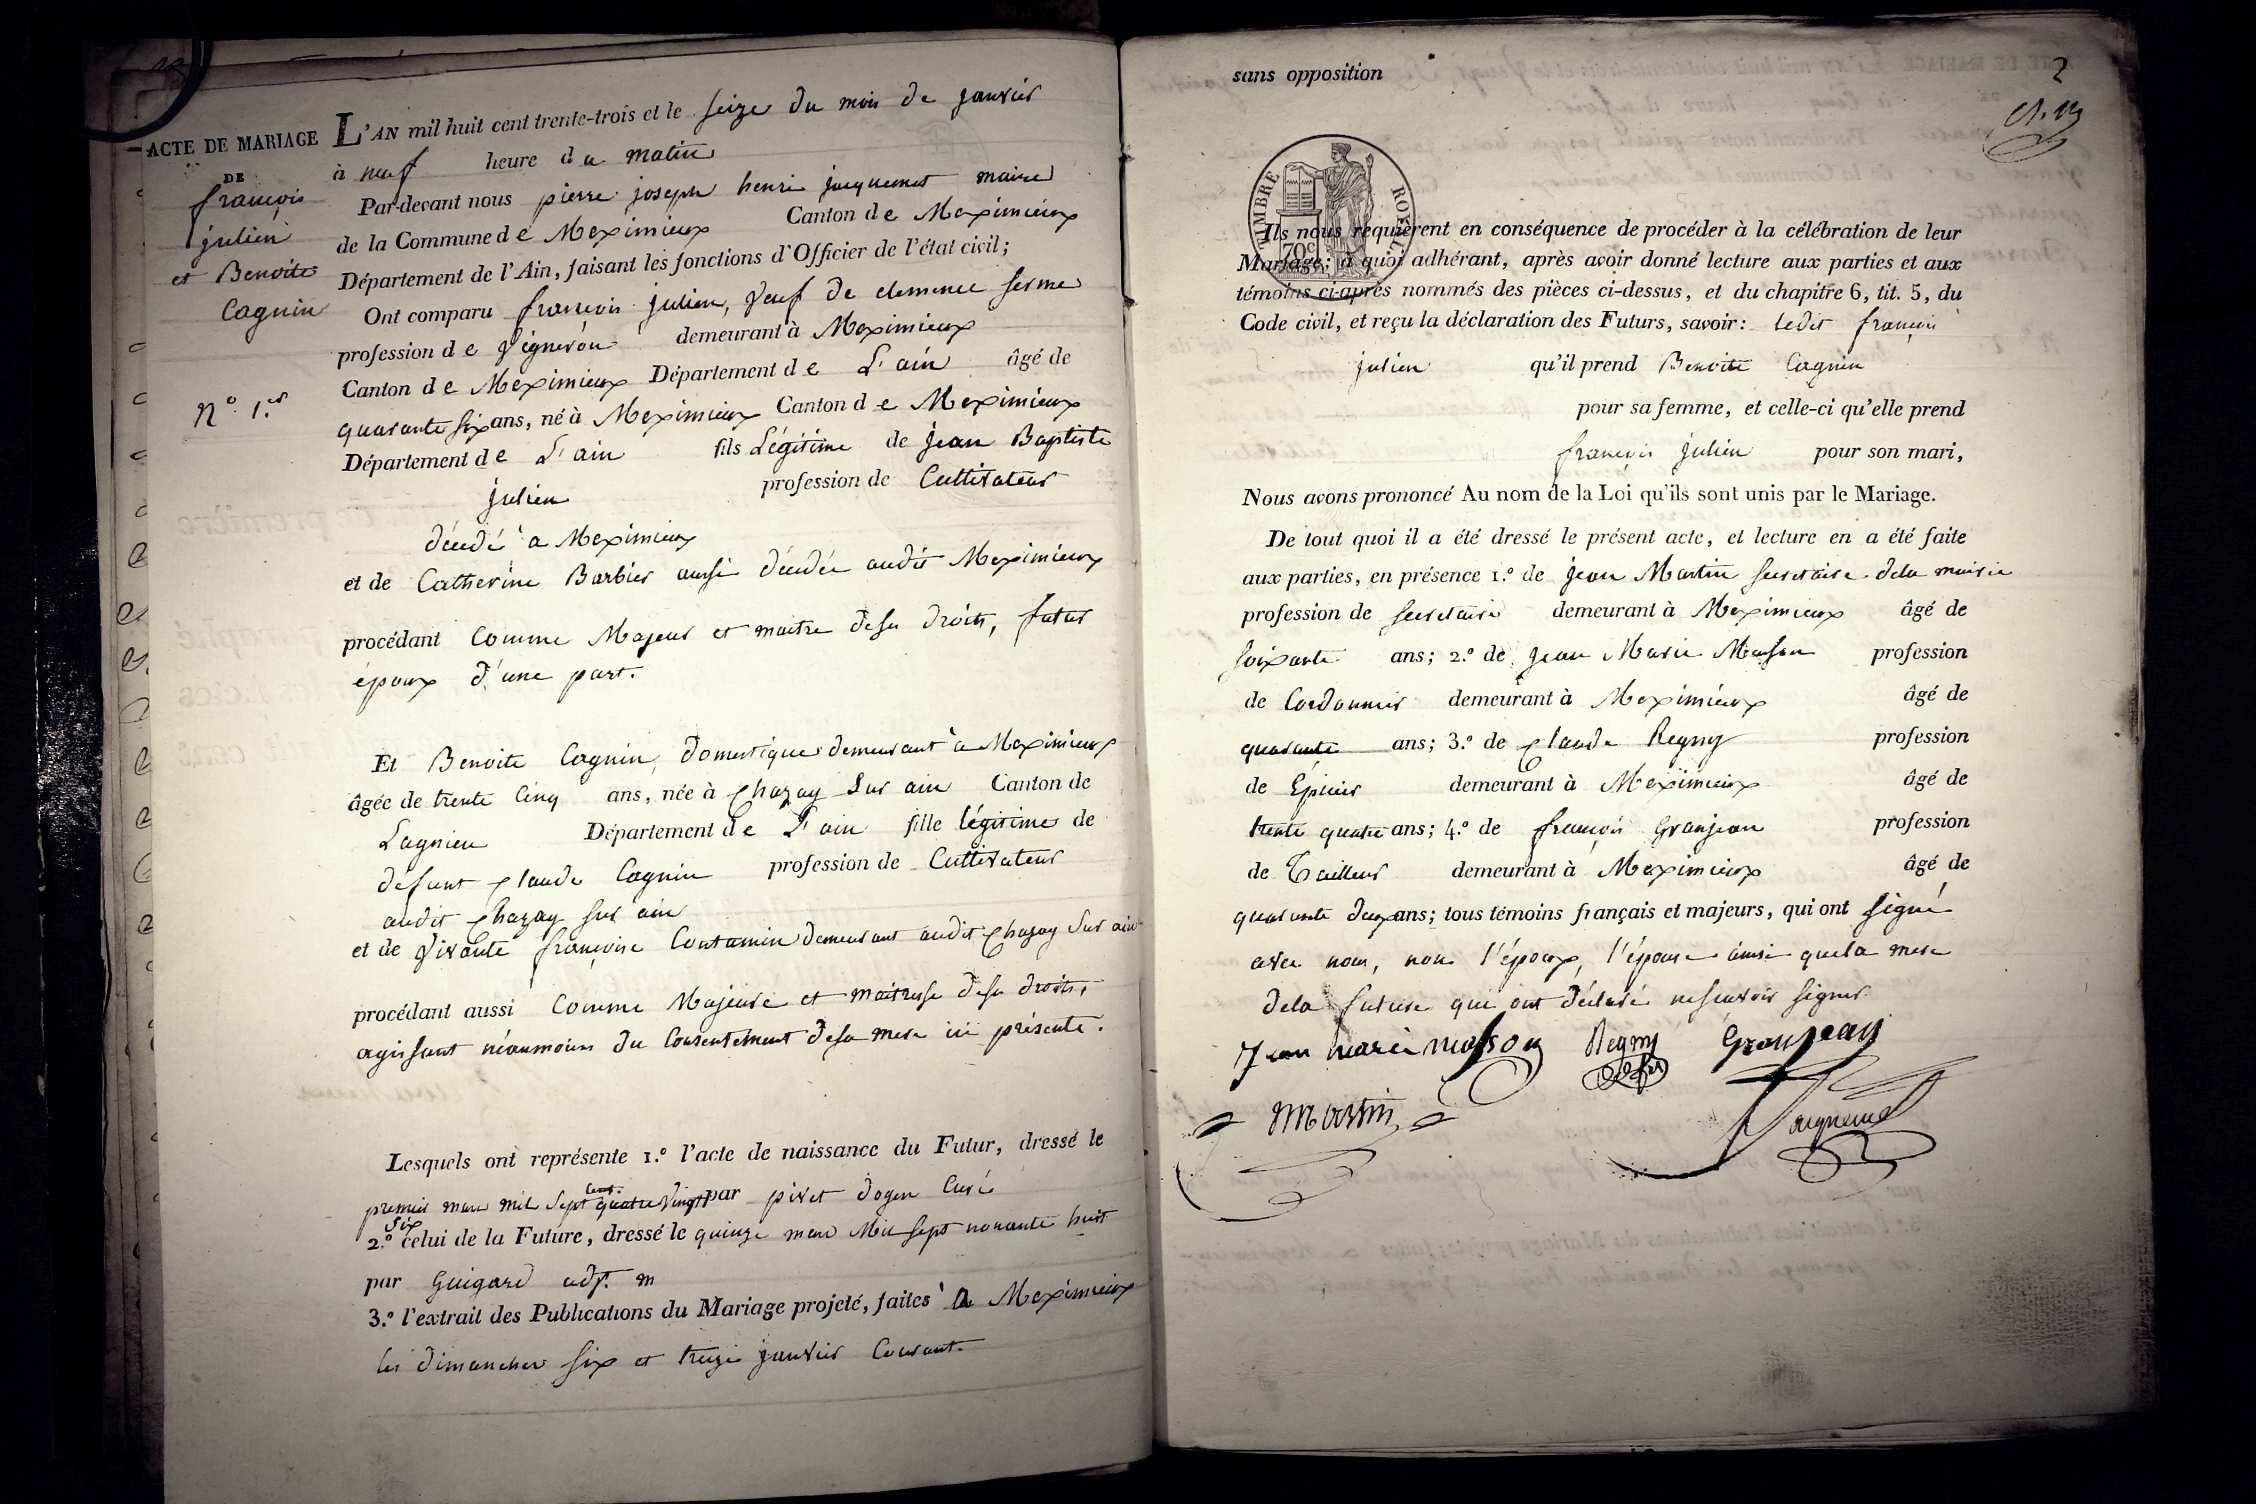 ACTE DE MARIAGE
DE
françois
julien
et Benoite
Cagnin
N° 1.er
L'AN mil huit cent trente-trois et le seize du mois de janvier
à neuf heure du matin
Par-devant nous pierre joseph henri jacquemet maire
de la Commune de Meximieux Canton de Meximieux
Département de l'Ain, faisant les fonctions d'Officier de l'état civil;
Ont comparu françois julien, veuf de clemence ferme
profession de vigneron demeurant à Meximieux
Canton de Meximieux Département de L'ain âgé de
quarante six ans, né à Meximieux Canton de Meximieux
Département de L'ain fils Légitime de jean Baptiste
julien profession de Cultivateur
décédé à Meximieux
et de Catherine Barbier aussi décédée audit Meximieux
procédant comme Majeur et maitre de ses droits, futur
époux d'une part.
Et Benoite Cagnin, domestique demeurant à Meximieux
âgée de trente cinq ans, née à Chazay sur ain Canton de
Lagnieu Département de L'ain fille légitime de
défunt claude Cagnin profession de Cultivateur
audit Chazay sur ain
et de vivante françoise Contamin demeurant audit Chazay sur ain
procédant aussi comme Majeure et maitresse de ses droits,
agissant néanmoins du consentement de sa mere ici présente.
Lesquels ont représente 1.° l'acte de naissance du Futur, dressé le
premier mars mil sept cent quatre vingt six par pivet doyen curé
2.° celui de la Future, dressé le quinze mars Mil sept nonante huit
par Guigard adj. m
3.° l'extrait des Publications du Mariage projeté, faites à Meximieux
les dimanches six et treize janvier courant.
sans opposition
2
TIMBRE ROYAL
70c
Ils nous requièrent en conséquence de procéder à la célébration de leur
Mariage; à quoi adhérant, après avoir donné lecture aux parties et aux
témoins ci-après nommés des pièces ci-dessus, et du chapitre 6, tit. 5, du
Code civil, et reçu la déclaration des Futurs, savoir: ledit françois
julien qu'il prend Benoite Cagnin
pour sa femme, et celle-ci qu'elle prend
françois julien pour son mari,
Nous avons prononcé Au nom de la Loi qu'ils sont unis par le Mariage.
De tout quoi il a été dressé le présent acte, et lecture en a été faite
aux parties, en présence 1.° de jean Martin secretaire dela mairie
profession de secretaire demeurant à Meximieux âgé de
soixante ans; 2.° de jean Marie Masson profession
de Cordonnier demeurant à Meximieux âgé de
quarante ans; 3.° de claude Regny profession
de Épicier demeurant à Meximieux âgé de
trente quatre ans; 4.° de françois Granjean profession
de Tailleur demeurant à Meximieux âgé de
quarante deux ans; tous témoins français et majeurs, qui ont signé
avec nous, non l'époux, l'épouse ainsi quela mere
dela future qui ont déclaré nesavoir signer
Jean marie masson Regny Granjean
Martin Jacquemet